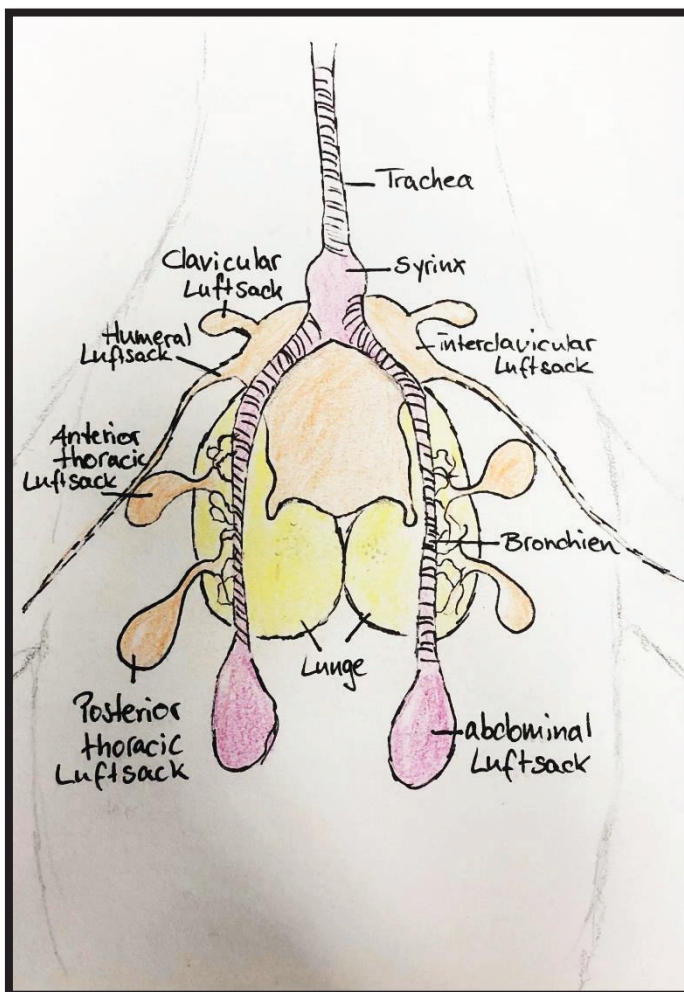 Trachea
Syrinx
Clavicular
Luftsack
Humeral
Luftsack
interclavicular
Luftsack
Anterior
thoracic
Luftsack
Bronchien
Lunge
Posterior
thoracic
Luftsack
abdominal
Luftsack